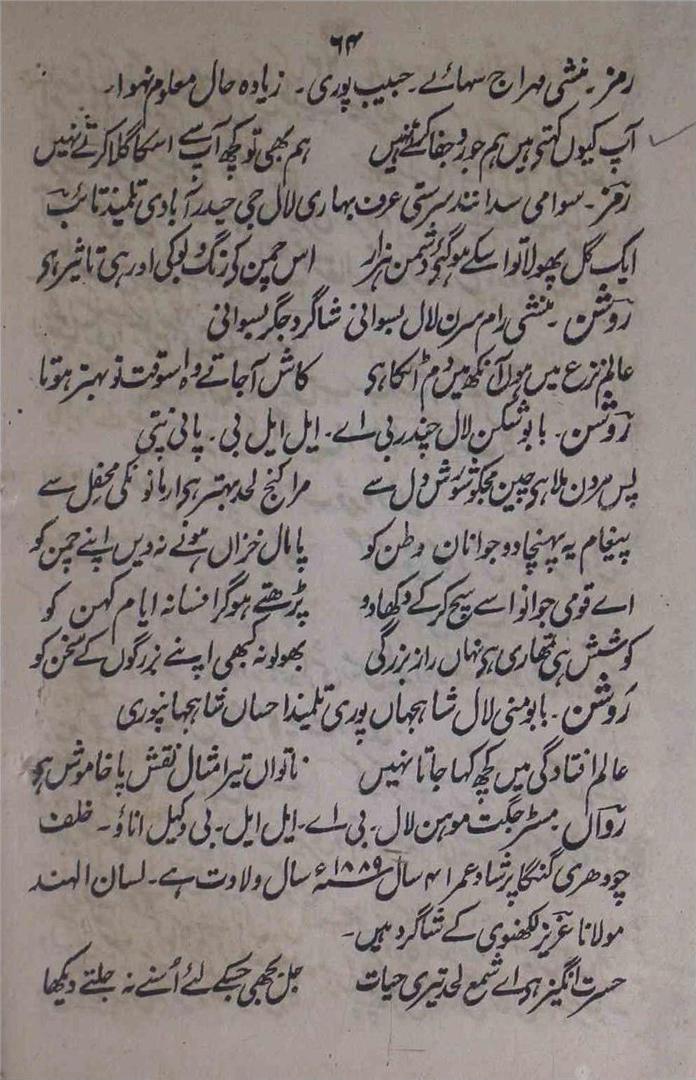 ۶۴
رمز۔ منشی مہراج سہائے۔ حبیب پوری۔ زیادہ حال معلوم نہوا۔
آپ کیوں کہتی ہیں ہم جور و جفا کرتے نہیں ہم بھی تو کچھ آپ سے اسکا گلا کرتے نہیں
رمز۔ سوامی سدانند سرستی عرف بہاری لال جی حیدر آبادی تلمیذ تائب
ایک گل پھولا تو اسکے ہوگئی دشمن ہزار اس چمن کی رنگ و بو کی اور ہی تاثیر ہی
روشن۔ منشی رام سرن لال بسوانی شاگرد جگر بسوانی
عالم نزع میں ہوں آنکھ میں دم اٹکا ہی کاش آجاتے وہ اسوقت تو بہتر ہوتا
روشن۔ بابو شگن لال چندر بی اے۔ ایل ایل بی۔ پانی پتی
پس مردن ملا ہی چین مجکو شوش دل سے مرا کنج لحد بہتر ہی ارمانونکی محفل سے
پیغام یہ پہنچا دو جوانان وطن کو پامال خزاں ہونے نہ دیں اپنے چمن کو
اے قومی جوانو اسے سچ کرکے دکھا دو پڑھتے ہو گر افسانہ ایام کہن کو
کوشش ہی تمھاری ہی نہاں راز بزرگی بھولو نہ کبھی اپنے بزرگوں کے سخن کو
روشن۔ بابو منی لال شاہجہاں پوری تلمیذ احساں شاہجہانپوری
عالم افتادگی میں کچھ کہا جاتا نہیں ناتواں تیرا مثال نقش پا خاموش ہی
رواں۔ مسٹر جگت موہن لال۔ بی اے۔ ایل ایل۔ بی وکیل اناؤ۔ خلف
چودھری گنگا پرشاد عمر ۴۱ سال ۱۸۸۹ء سال ولادت ہے۔ لسان الہند
مولانا عزیز لکھنوی کے شاگرد ہیں۔
حسرت انگیز ہی اے شمع لحد تیری حیات جل بجھی جسکے لئے اُسنے نہ جلتے دیکھا